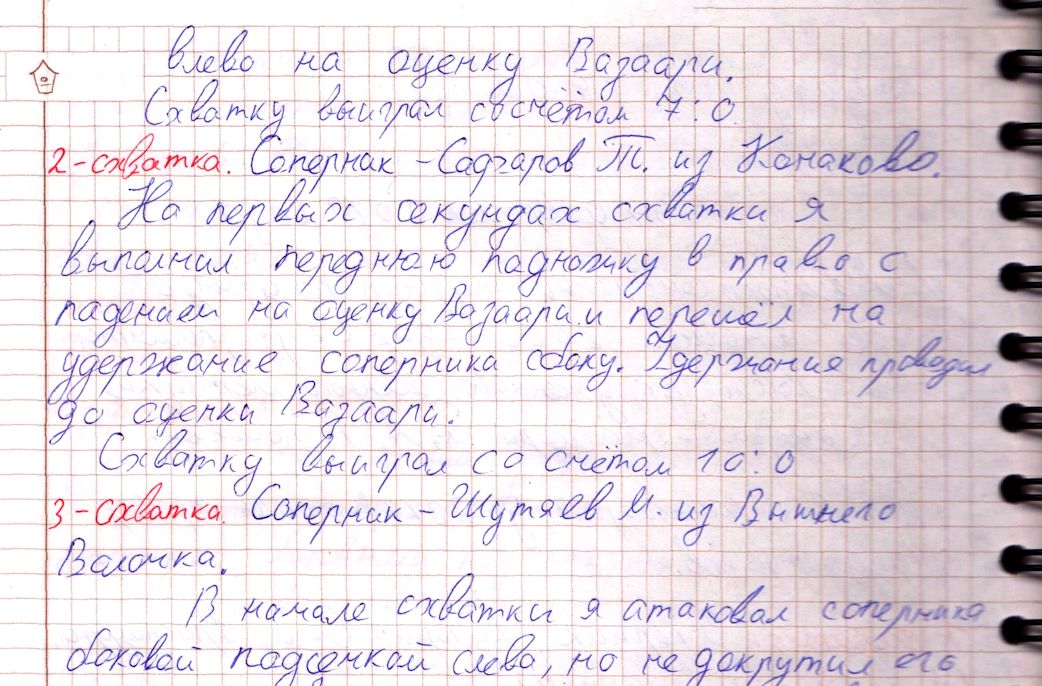 влево на оценку Вазаари.
Схватку выиграл со счётом 7:0
2-схватка. Соперник - Садгаров Т. из Конаково.
На первых секундах схватки я
выполнил переднюю подножку в право с
падением на оценку Вазаари и перешёл на
удержание соперника сбоку. Удержания проводил
до оценки Вазаари.
Схватку выиграл со счётом 10:0
3-схватка. Соперник - Шутяев М. из Вышнего
Волочка.
В начале схватки я атаковал соперника
боковой подсечкой слева, но не докрутил его